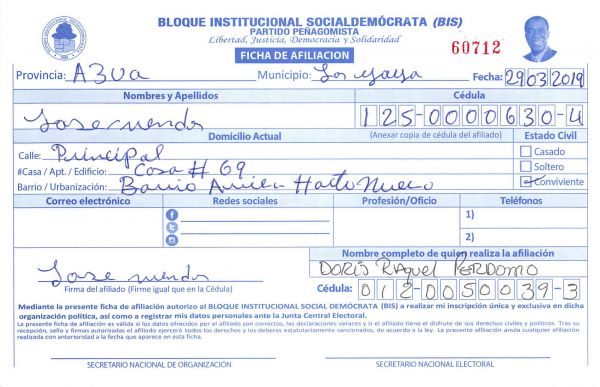 BLOQUE INSTITUCIONAL SOCIALDEMÓCRATA (BIS)
PARTIDO PEÑAGOMISTA
Libertad, Justicia, Democracia y Solidaridad
FICHA DE AFILIACION
60712
Provincia: AZUA Municipio: Los Fecha: 29/03/2019
Nombres y Apellidos Cédula
Jose mendos 125-0000630-4
Domicilio Actual (Anexar copia de cédula del afiliado) Estado Civil
Calle: Principal Casado
#Casa / Apt. / Edificio: Casa # 69 Soltero
Barrio / Urbanización: Barrio Nuevo Conviviente
Correo electrónico Redes sociales Profesión/Oficio Teléfonos
1)
2)
Nombre completo de quien realiza la afiliación
Jose mendos DORIS RAquel PERDOMO
Firma del afiliado (Firme igual que en la Cédula) Cédula: 012-0050039-3
Mediante la presente ficha de afiliación autorizo al BLOQUE INSTITUCIONAL SOCIAL DEMÓCRATA (BIS) a realizar mi inscripción única y exclusiva en dicha
organización política, así como a registrar mis datos personales ante la Junta Central Electoral.
La presente ficha de afiliación es válida si los datos ofrecidos por el afiliado son correctos, las declaraciones veraces y si el afiliado tiene el disfrute de sus derechos civiles y políticos. Tras su
recepción, sello y firmas autorizadas el afiliado ejercerá todos los derechos y los deberes estatutariamente sancionados, de acuerdo a la ley. La presente afiliación anula cualquier afiliación
realizada con anterioridad a la fecha que aparece en esta ficha.
SECRETARIO NACIONAL DE ORGANIZACIÓN SECRETARIO NACIONAL ELECTORAL